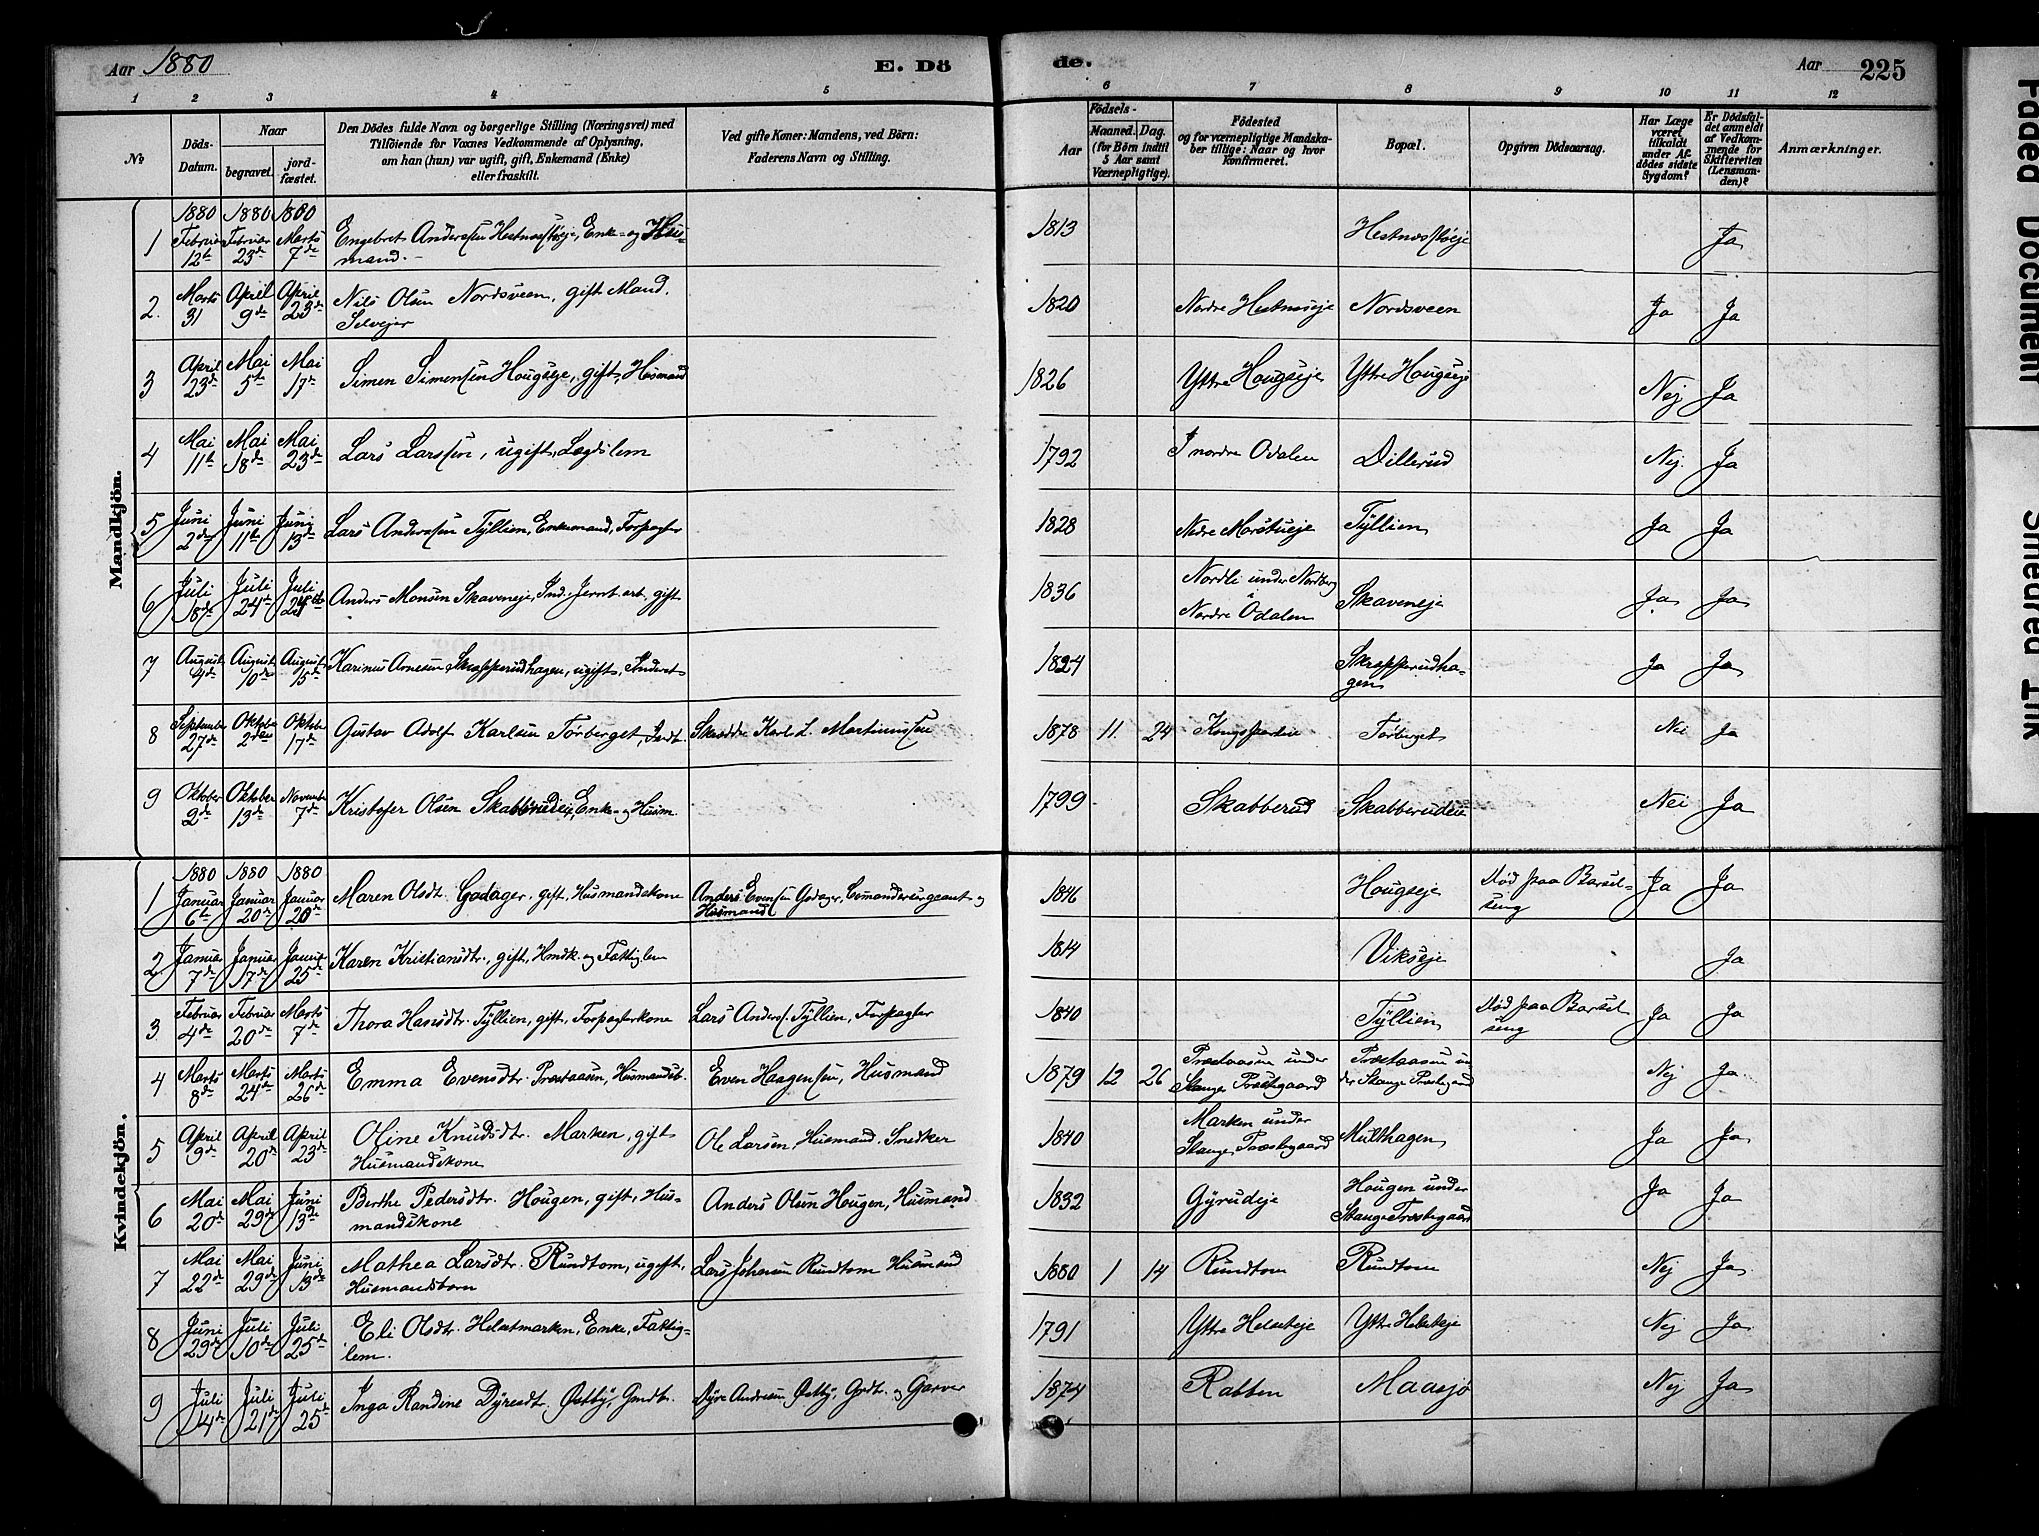 Aar 1880
E. Döde.
Aar 225
1 2 3 4 5 6 7 8 9 10 11 12
№
Döds-Datum.
Naar
begravet.
jord-fæstet.
Den Dödes fulde Navn og borgerlige Stilling (Næringsvei) med
Tilföiende for Voxnes Vedkommende af Oplysning,
om han (hun) var ugift, gift, Enkemand (Enke)
eller fraskilt.
Ved gifte Koner: Mandens, ved Börn:
Faderens Navn og Stilling.
Födsels-
Aar
Maaned. Dag.
(for Börn indtil
5 Aar samt
Værnepligtige).
Födested
og for værnepligtige Mandska-
ber tillige: Naar og hvor
konfirmeret.
Bopæl.
Opgiven Dödsaarsag.
Har Læge
været
tilkaldt
under Af-
dödes sidste
Sygdom?
Er Dödsfal-
det anmeldt
af Vedkom-
mende for
Skifteretten
(Lensman-
den)?
Anmærkninger.
Mandkjön.
1880 1880 1880
1 Februar 12te Februar 23de Marts 7de Engebret Anderssen Hestnæseje, Enke- og Hus-
mand. 1813 Hestnæseje Ja
2. Marts 31 April 9de April 23de Nils Olsen Nordsveen, gift Mand.
Selvejer 1820 Nordre Hestnæseje Nordsveen Ja Ja
3 April 23de Mai 5te Mai 17de Simen Simenssen Hougseje, gift, Husmand 1826 Yttre Hougseje Yttre Hougseje Nej Ja
4 Mai 11te Mai 18de Mai 23de Lars Larssen, ugift, Lægdslem 1792 I nordre Odalen Dillerud Nej. Ja
5 Juni 2de Juni 11te Juni 13de Lars Anderssen Tyllien, Enkemand, Forpagter 1828 Nedre Marstueje Tyllien Ja Ja
6 Juli 18de Juli 24de Juli 24de Anders Monsen Skaveneje, Ind. Jernb. arb. gift 1836 Nordli under Nordberg
i Nordre Odalen Skaveneje Ja Ja
7 August 4de August 10de August 15de Karinus Arnesen Skrapperudhagen, ugift, Inderst 1824 Skrapperudha-
gen Ja Ja
8 September 27de Oktober 2den Oktober 17de Gustav Adolf Karlsen Torberget, Indt. Skrædder Karl L. Martinussen 1878 11 24 Kongsparten Torberget Nei Ja
9 Oktober 2de Oktober 13de November 7de Kristofer Olsen Skabberudeje, Enke- og Husm. 1799 Skabberud Skabberudeie Nei Ja
Kvindekjön.
1880 1880 1880
1 Januar 6te Januar 20de Januar 20de Maren Olsdt. Godager, gift, Husmandskone Anders Evensen Godager, Comandersergeant og
Husmand 1846 Hougseje Död paa Barsel-
seng Ja Ja
2 Januar 7de Januar 17de Januar 25de Karen Kristiansdtr., gift, Hmdk. og Fattiglem 1814 Vikseje Ja
3 Februar 4de Februar 20de Marts 7de Thora Hansdtr. Tyllien, gift, Forpagterkone Lars Anders. Tyllien, Forpagter 1840 Tyllien Död paa Barsel
seng Ja Ja
4 Marts 8de Marts 24de Marts 26de Emma Evensdtr. Prestaasen, Husmandsb. Even Haagensen, Husmand 1879 12 26 Præstaasen under
Stange Præstegaard Præstaasen un
der Stange Præstegaard Nej Ja
5 April 9de April 20de April 23de Oline Knudsdtr. Marken, gift
Husmandskone Ole Larsen, Husmand. Snedker 1840 Marken under
Stange Præstegaard Multhagen Ja Ja
6 Mai 20de Mai 29de Juni 13de Berthe Pedersdtr. Hougen, gift, Hus-
mandskone Anders Olsen Hougen, Husmand 1832 Gyrudeje Hougen under
Stange Præstegaard Ja Ja
7 Mai 22de Mai 29de Juni 13de Mathea Larsdtr. Rundtom, ugift,
Husmandsbarn Lars Johansen Rundtom Husmand 1880 1 14 Rundtom Rundtom Nej Ja
8 Juni 29de Juli 10de Juli 25de Eli Olsdtr. Helsetmarken, Enke, Fattig-
lem. 1791 Yttre Helseteje Yttre Helseteje Nej Ja
9 Juli 14de Juli 21de Juli 25de Inga Randine Dyresdt. Østby, Gmdt. Dyre Andresen Østby, Grdt. og Garver 1874 Rabben Maasjö Nej Ja
Faded Document
Smeared Ink